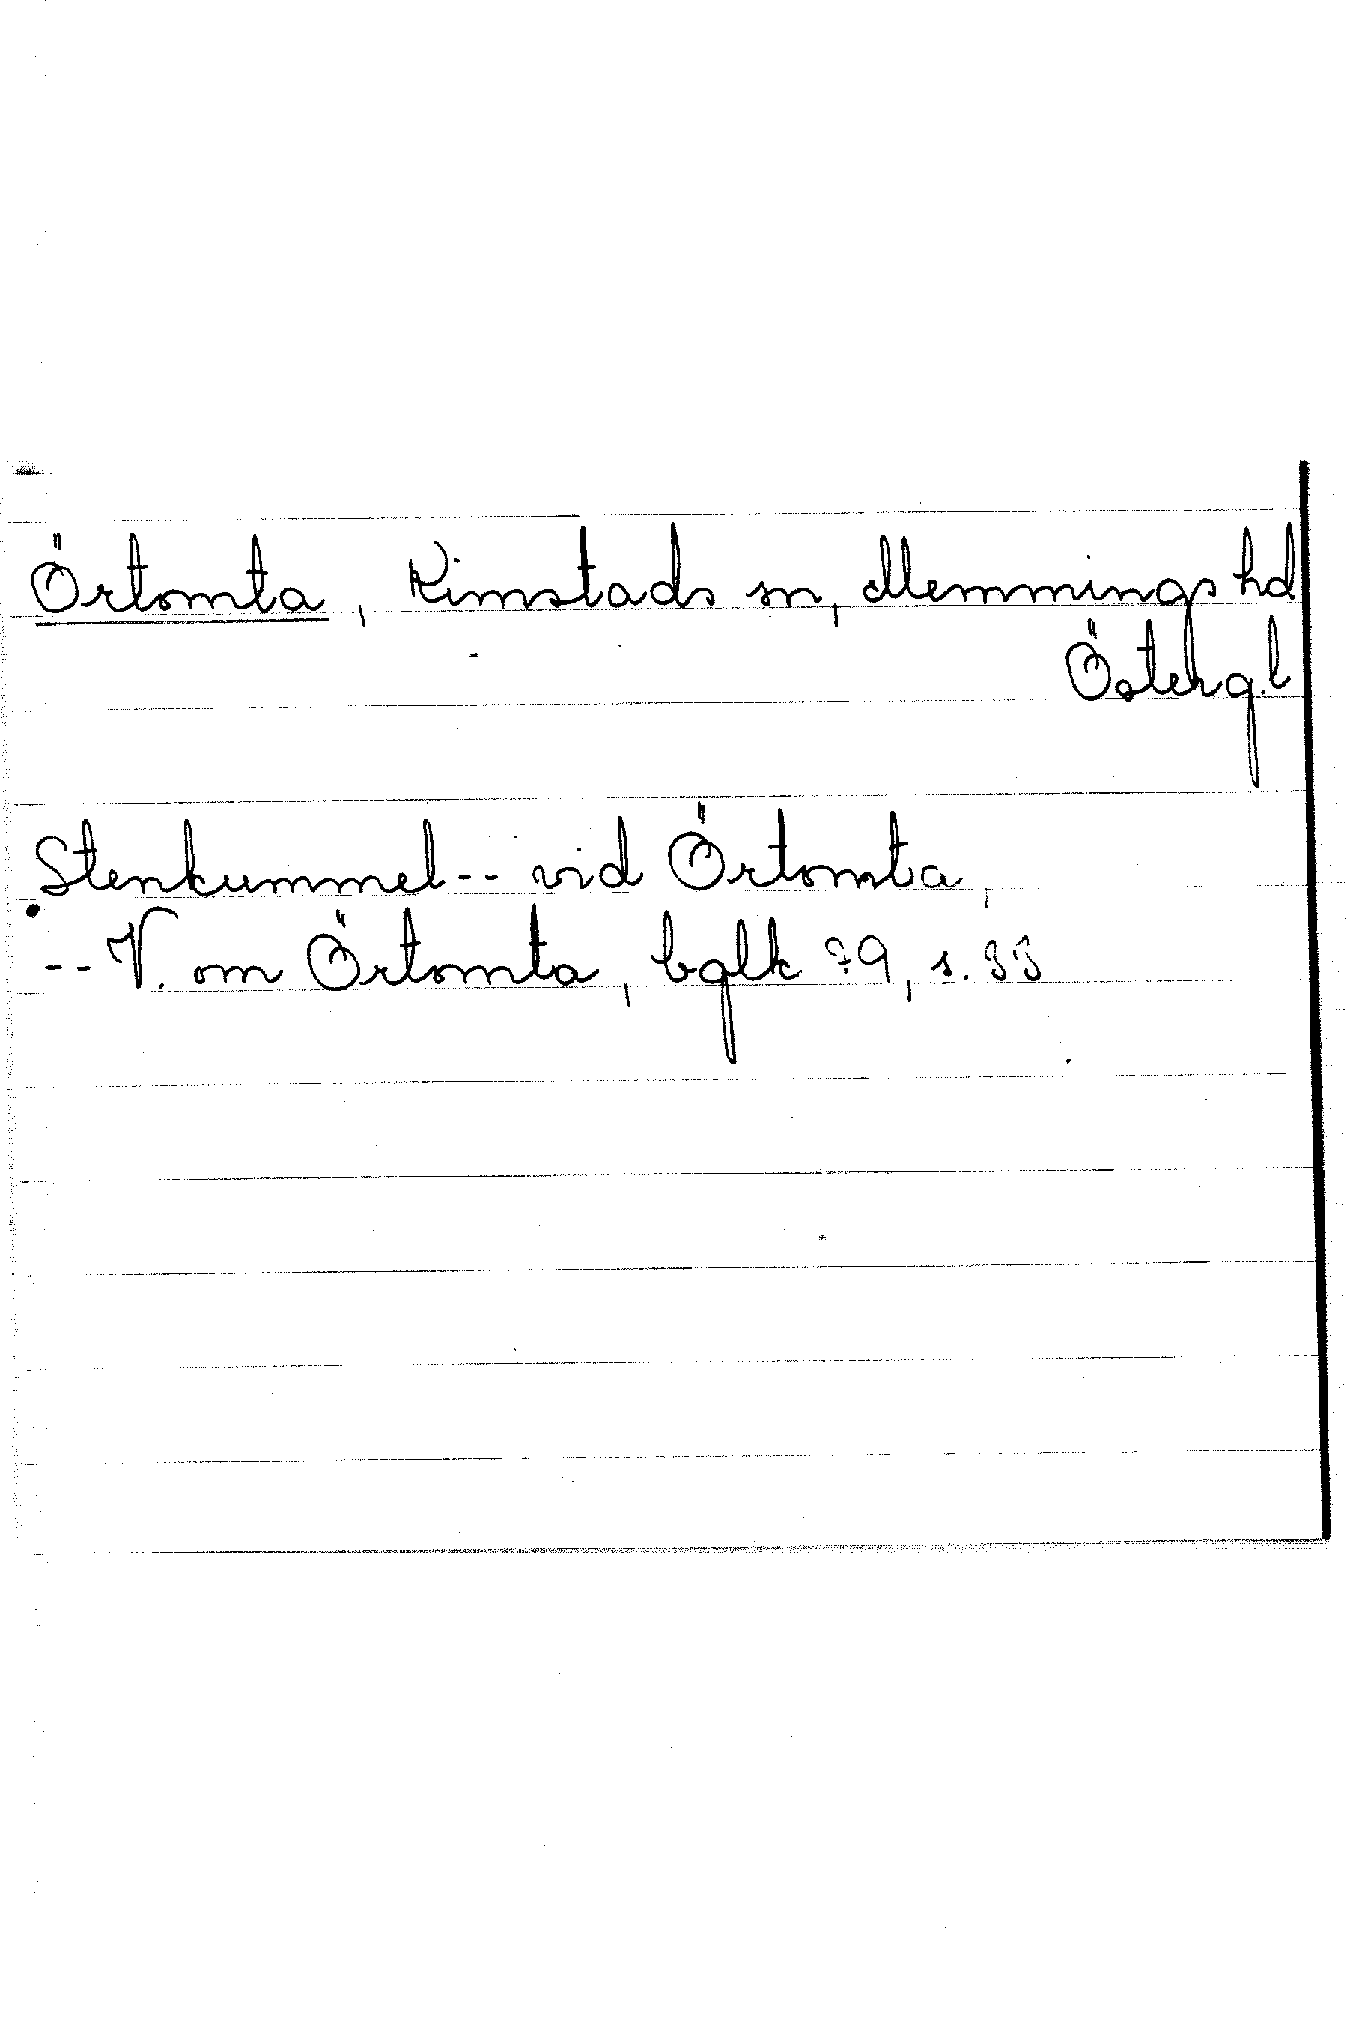 Örtomta, Kimstads sn, Memmings hd
Österg.l
Stenkummel -- vid Örtomta,
-- V. om Örtomta, bglk 79, s. 33